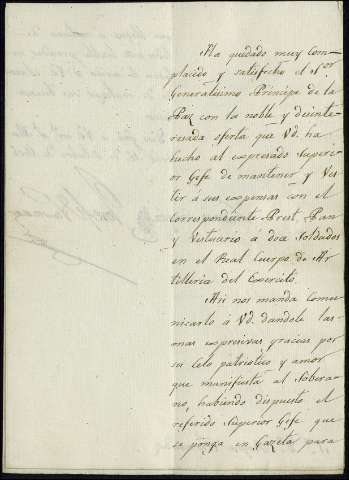 Ha quedado muy com-
placido y satisfecho el S.or
Generalisimo Principe de la
Paz con la noble y desinte-
resada oferta que Vd. ha
hecho al expresado Superi-
or Gefe de mantener y Ves-
tir á sus expensas con el
correspondiente Prest, Pan
y Vestuario á doce Soldados
en el Real Cuerpo de Ar-
tilleria del Exercito.
Asi nos manda Comu-
nicarlo á Vd. dandole las
mas expresivas gracias por
su Celo patriotico y amor
que manifiesta al Sobera-
no, habiendo dispuesto el
referido Superior Gefe que
se ponga en Gazeta para